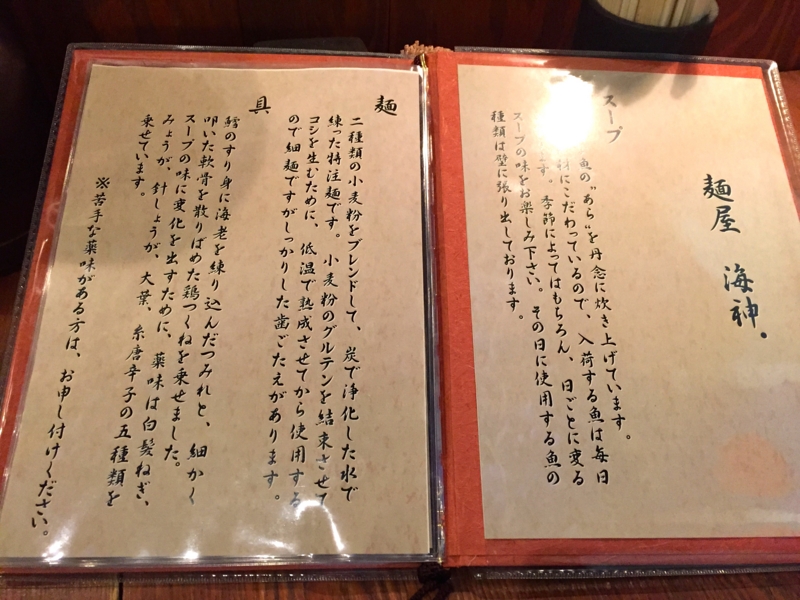 麺屋 海神。
スープ
魚の“あら”を丹念に炊き上げています。
材にこだわっているので、入荷する魚は毎日
ます。季節によってはもちろん、日ごとに変る
スープの味をお楽しみ下さい。その日に使用する魚の
種類は壁に張り出しております。
麺
二種類の小麦粉をブレンドして、炭で浄化した水で
練った特注麺です。小麦粉のグルテンを結束させて
コシを生むために、低温で熟成させてから使用する
ので細麺ですがしっかりした歯ごたえがあります。
具
鱈のすり身に海老を練り込んだつみれと、細かく
叩いた軟骨を散りばめた鶏つくねを乗せました。
スープの味に変化を出すために、薬味は白髪ねぎ、
みょうが、針しょうが、大葉、糸唐辛子の五種類を
乗せています。
※苦手な薬味がある方は、お申し付けください。